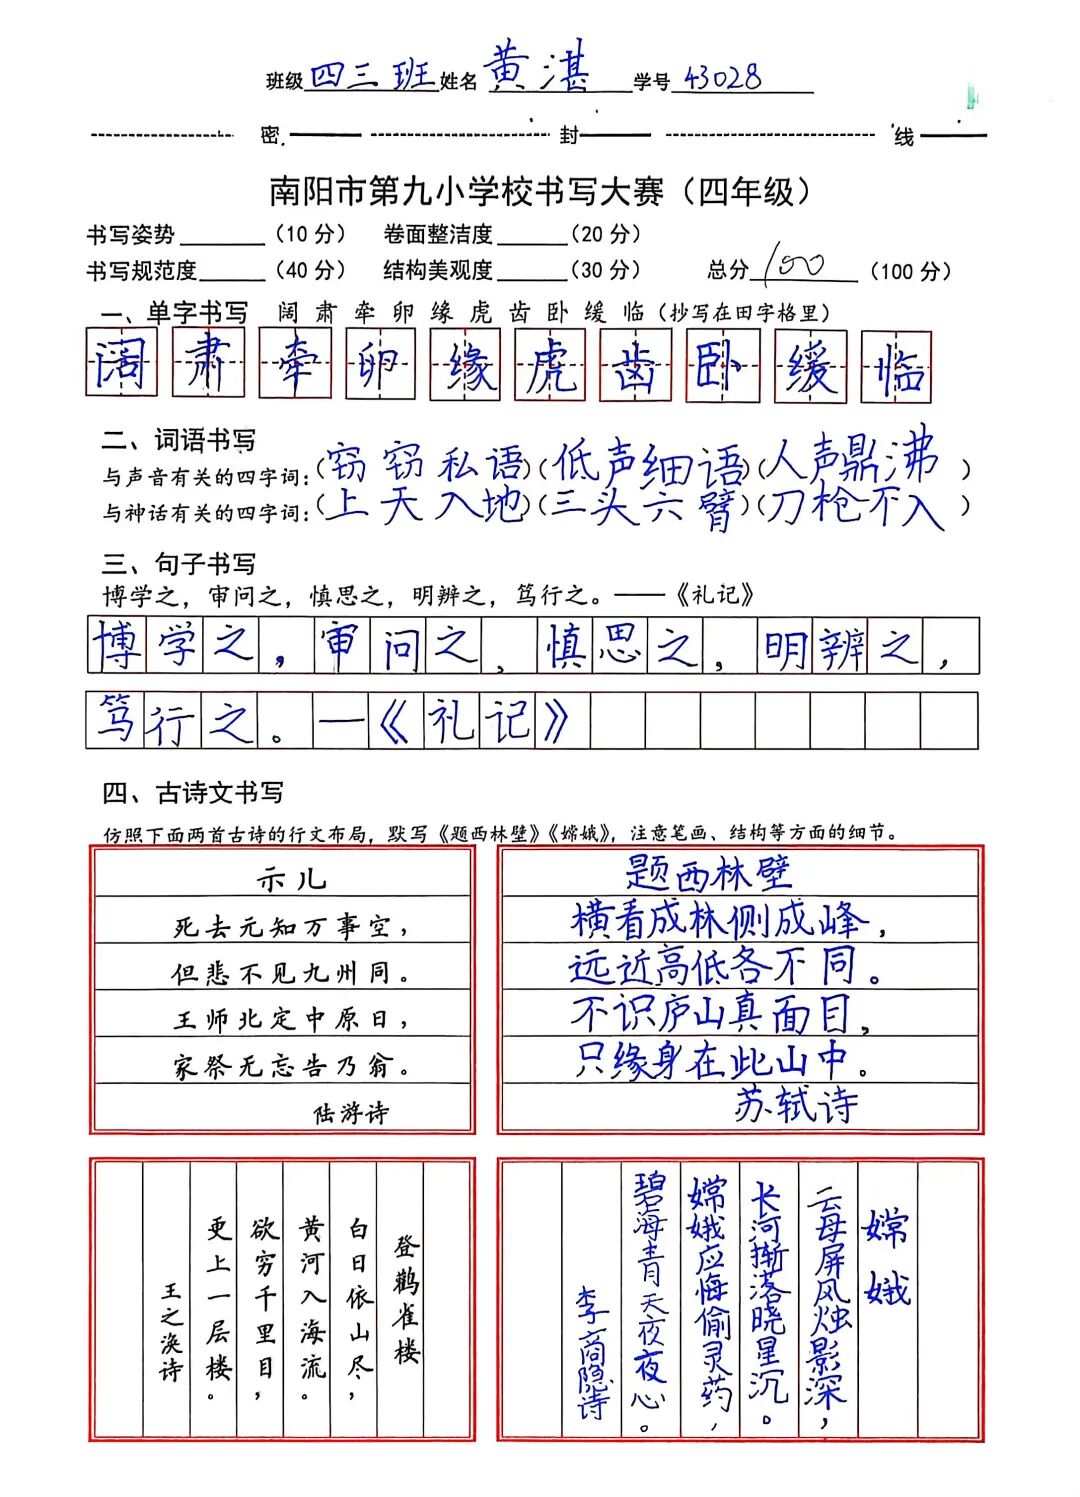 班级四三班姓名黄湛学号43028
密 封 线
南阳市第九小学校书写大赛（四年级）
书写姿势______（10分） 卷面整洁度______（20分）
书写规范度______（40分） 结构美观度______（30分） 总分100（100分）
一、单字书写 阔 肃 牵 卵 缘 虎 齿 卧 缓 临（抄写在田字格里）
阔 肃 牵 卵 缘 虎 齿 卧 缓 临
二、词语书写
与声音有关的四字词：（窃窃私语）（低声细语）（人声鼎沸）
与神话有关的四字词：（上天入地）（三头六臂）（刀枪不入）
三、句子书写
博学之，审问之，慎思之，明辨之，笃行之。——《礼记》
博学之，审问之，慎思之，明辨之，
笃行之。—《礼记》
四、古诗文书写
仿照下面两首古诗的行文布局，默写《题西林壁》《嫦娥》，注意笔画、结构等方面的细节。
示儿
死去元知万事空，
但悲不见九州同。
王师北定中原日，
家祭无忘告乃翁。
陆游诗
题西林壁
横看成林侧成峰，
远近高低各不同。
不识庐山真面目，
只缘身在此山中。
苏轼诗
登鹳雀楼
白日依山尽，
黄河入海流。
欲穷千里目，
更上一层楼。
王之涣诗
嫦娥
云母屏风烛影深，
长河渐落晓星沉。
嫦娥应悔偷灵药，
碧海青天夜夜心。
李商隐诗